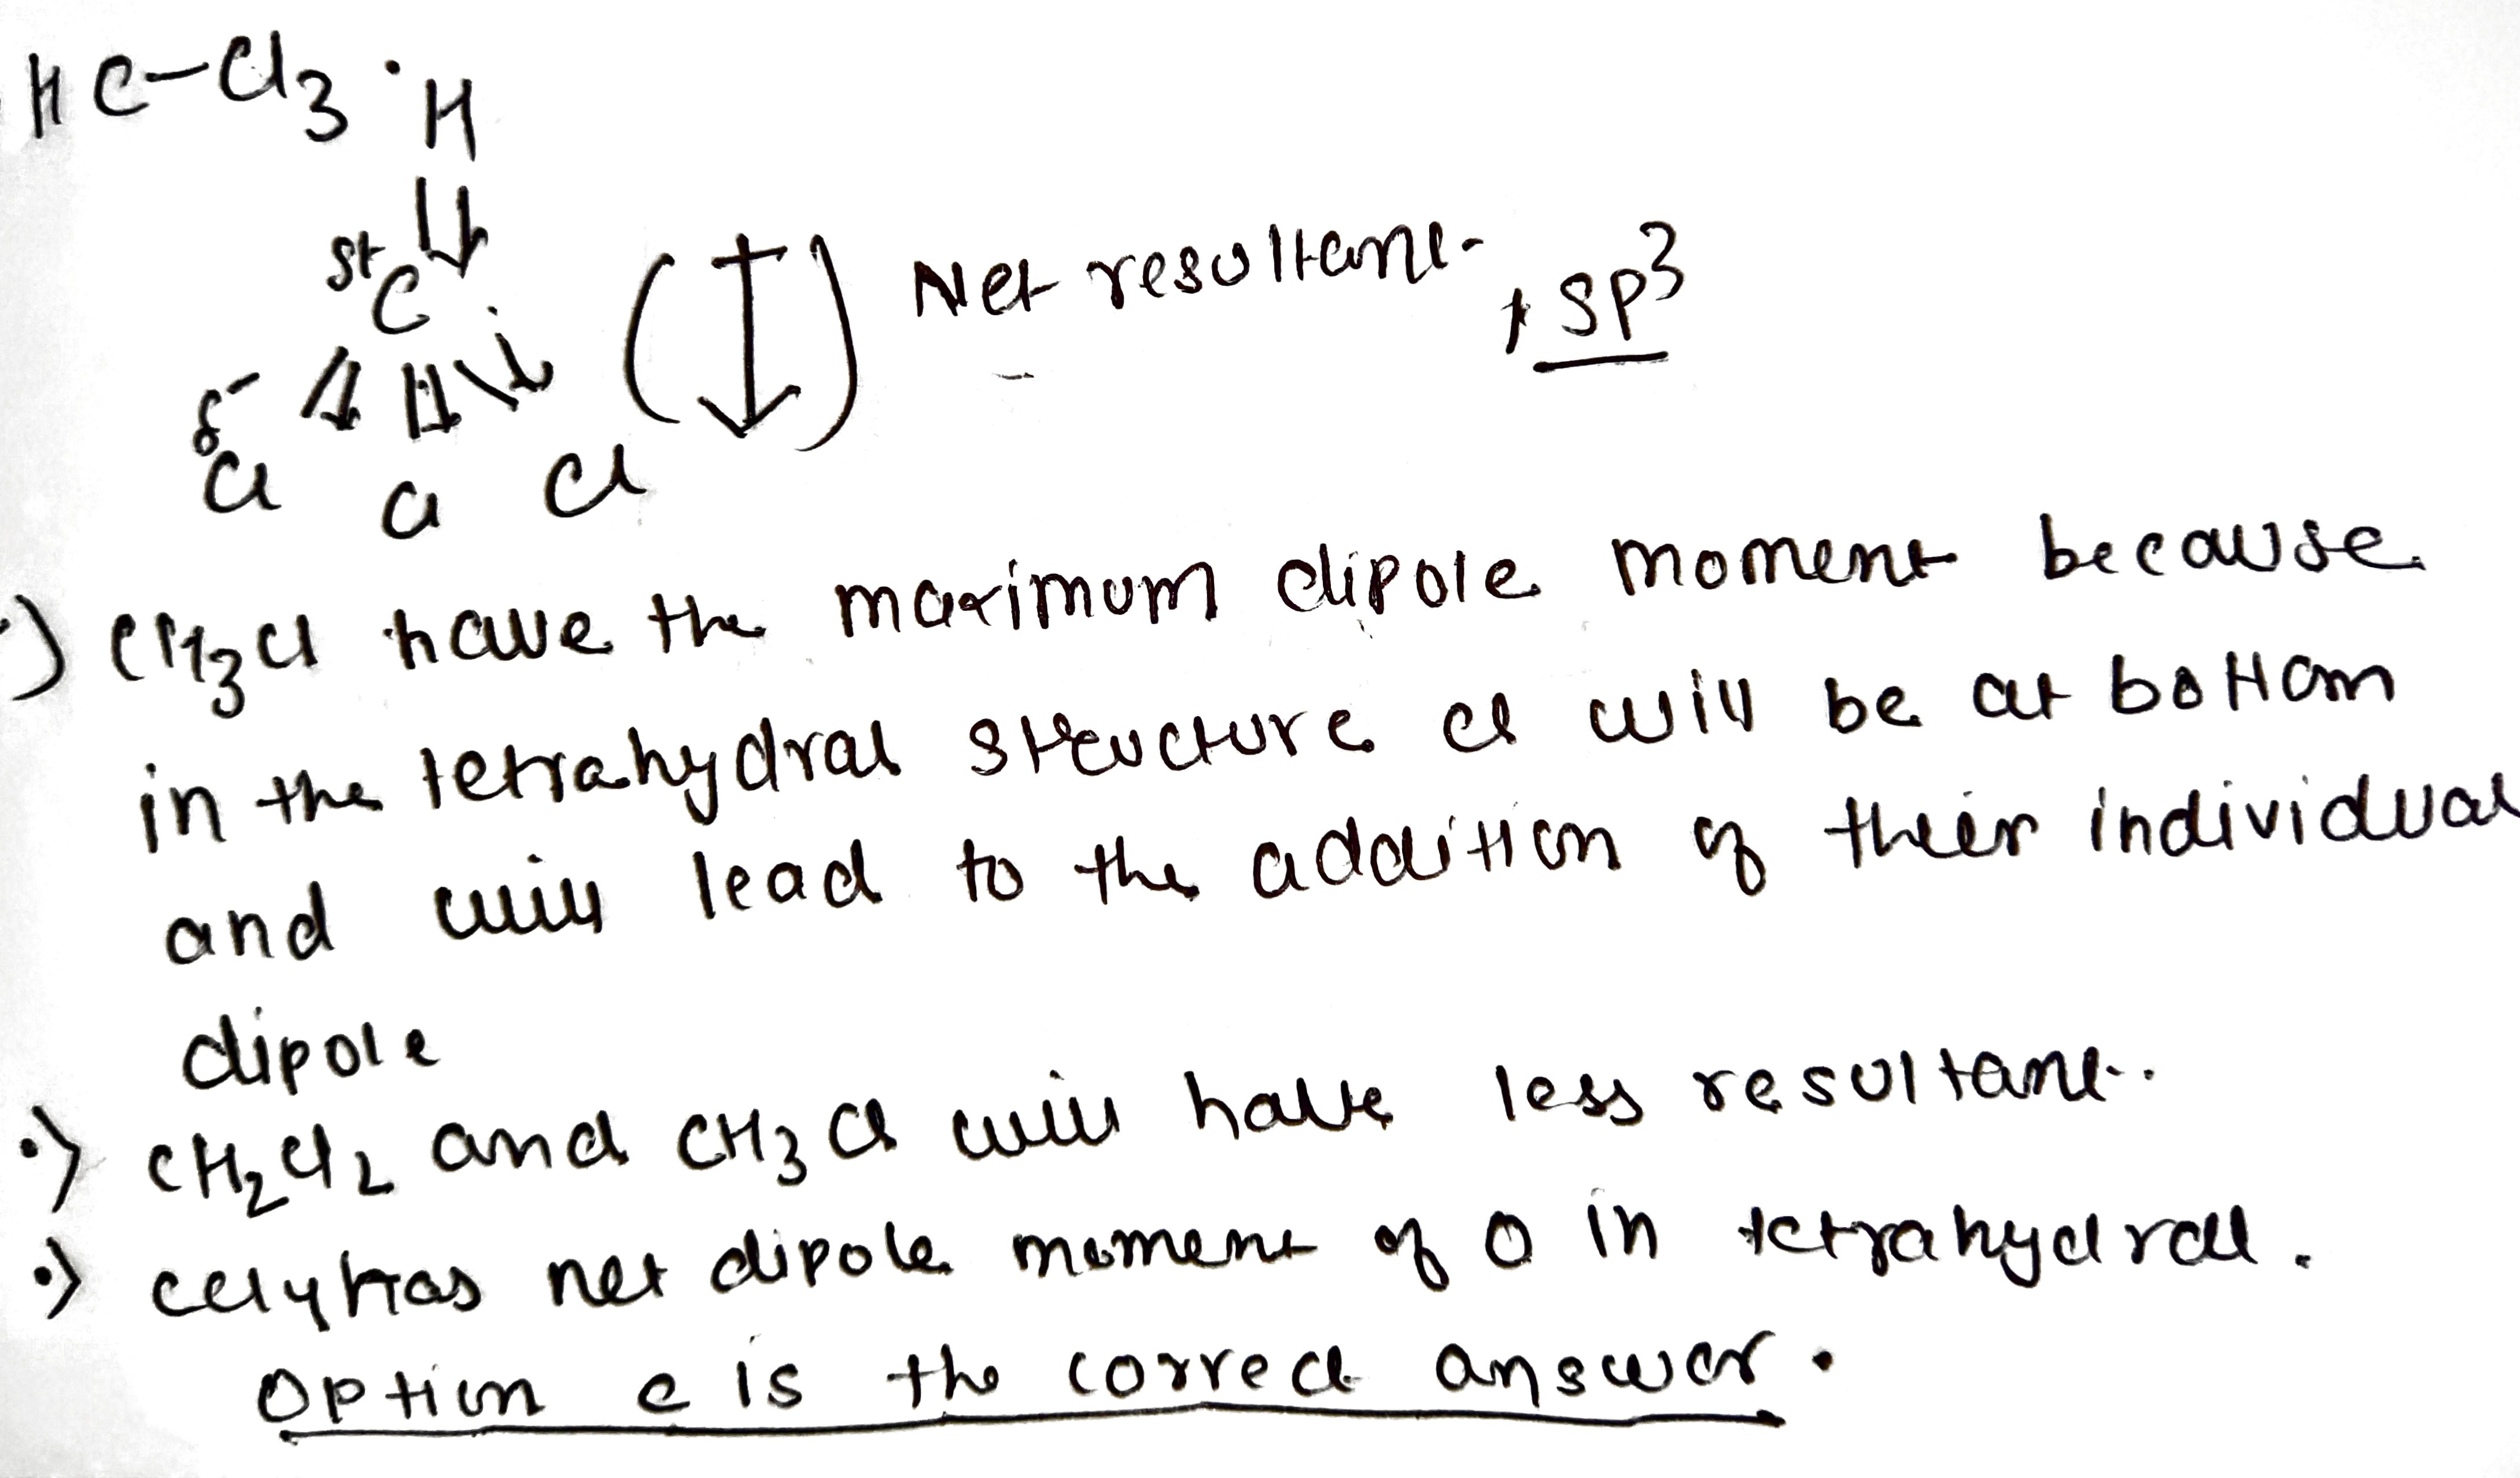 HC-Cl3 . H
δ+ C
Net resultant
sp3
δ-
Cl Cl Cl
.) CH3Cl have the maximum dipole moment because
in the tetrahydral structure Cl will be at bottom
and will lead to the addition of their individual
dipole
.) CH2Cl2 and CH3Cl will have less resultant.
.) CCl4 has net dipole moment of 0 in tetrahydral.
Option C is the correct answer.